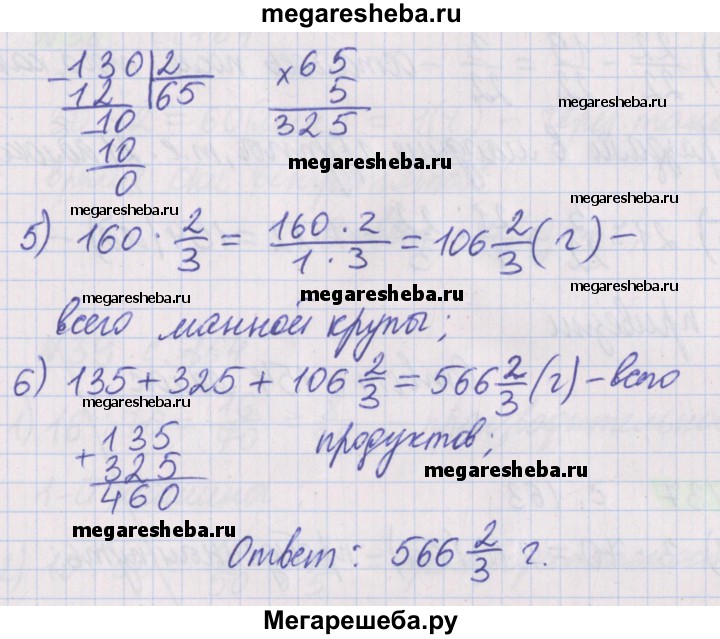 megaresheba.ru
130 | 2        × 65
12 | 65           5
10               325
10
0
megaresheba.ru
megaresheba.ru
megaresheba.ru
5) 160 · 2/3 = 160 · 2 / 1 · 3 = 106 2/3 (г) –
megaresheba.ru
megaresheba.ru
megaresheba.ru
всего манной крупы;
6) 135 + 325 + 106 2/3 = 566 2/3 (г) – всего
megaresheba.ru
продуктов;
+ 135
325
460
megaresheba.ru
megaresheba.ru
Ответ: 566 2/3 г.
Мегарешеба.ру